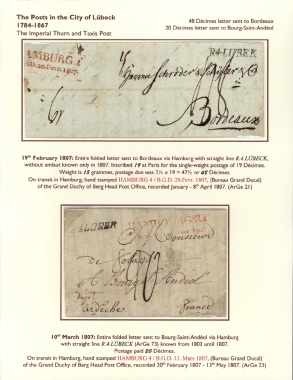 The Posts in the City of Lübeck
1784-1867
The Imperial Thurn and Taxis Post
48 Décimes letter sent to Bordeaux
20 Décimes letter sent to Bourg-Saint-Andéol
R.4.LÜBEK
HAMBURG 4
Bordeaux
19th February 1807: Entire folded letter sent to Bordeaux via Hamburg with straight line R.4.LÜBECK,
without umlaut known only in 1807. Inscribed 19 at Paris for the single-weight postage of 19 Décimes.
Weight is 15 grammes, postage due was 2½ x 19 = 47½ or 48 Décimes.
On transit in Hamburg, hand stamped HAMBURG 4 / B.G.D. 28.Fevr. 1807, (Bureau Grand Ducal)
of the Grand Duchy of Berg Head Post Office, recorded January - 8th April 1807. (ArGe 21)
HAMBOURG 4
Monsieur
de
France
10th March 1807: Entire folded letter sent to Bourg-Saint-Andéol via Hamburg
with straight line R.4.LÜBECK (ArGe 73) known from 1803 until 1807.
Postage paid 20 Décimes.
On transit in Hamburg, hand stamped HAMBOURG 4 / B.G.D. 13. Mars 1807, (Bureau Grand Ducal)
of the Grand Duchy of Berg Head Post Office, recorded 20th February 1807 - 13th May 1807. (ArGe 22)